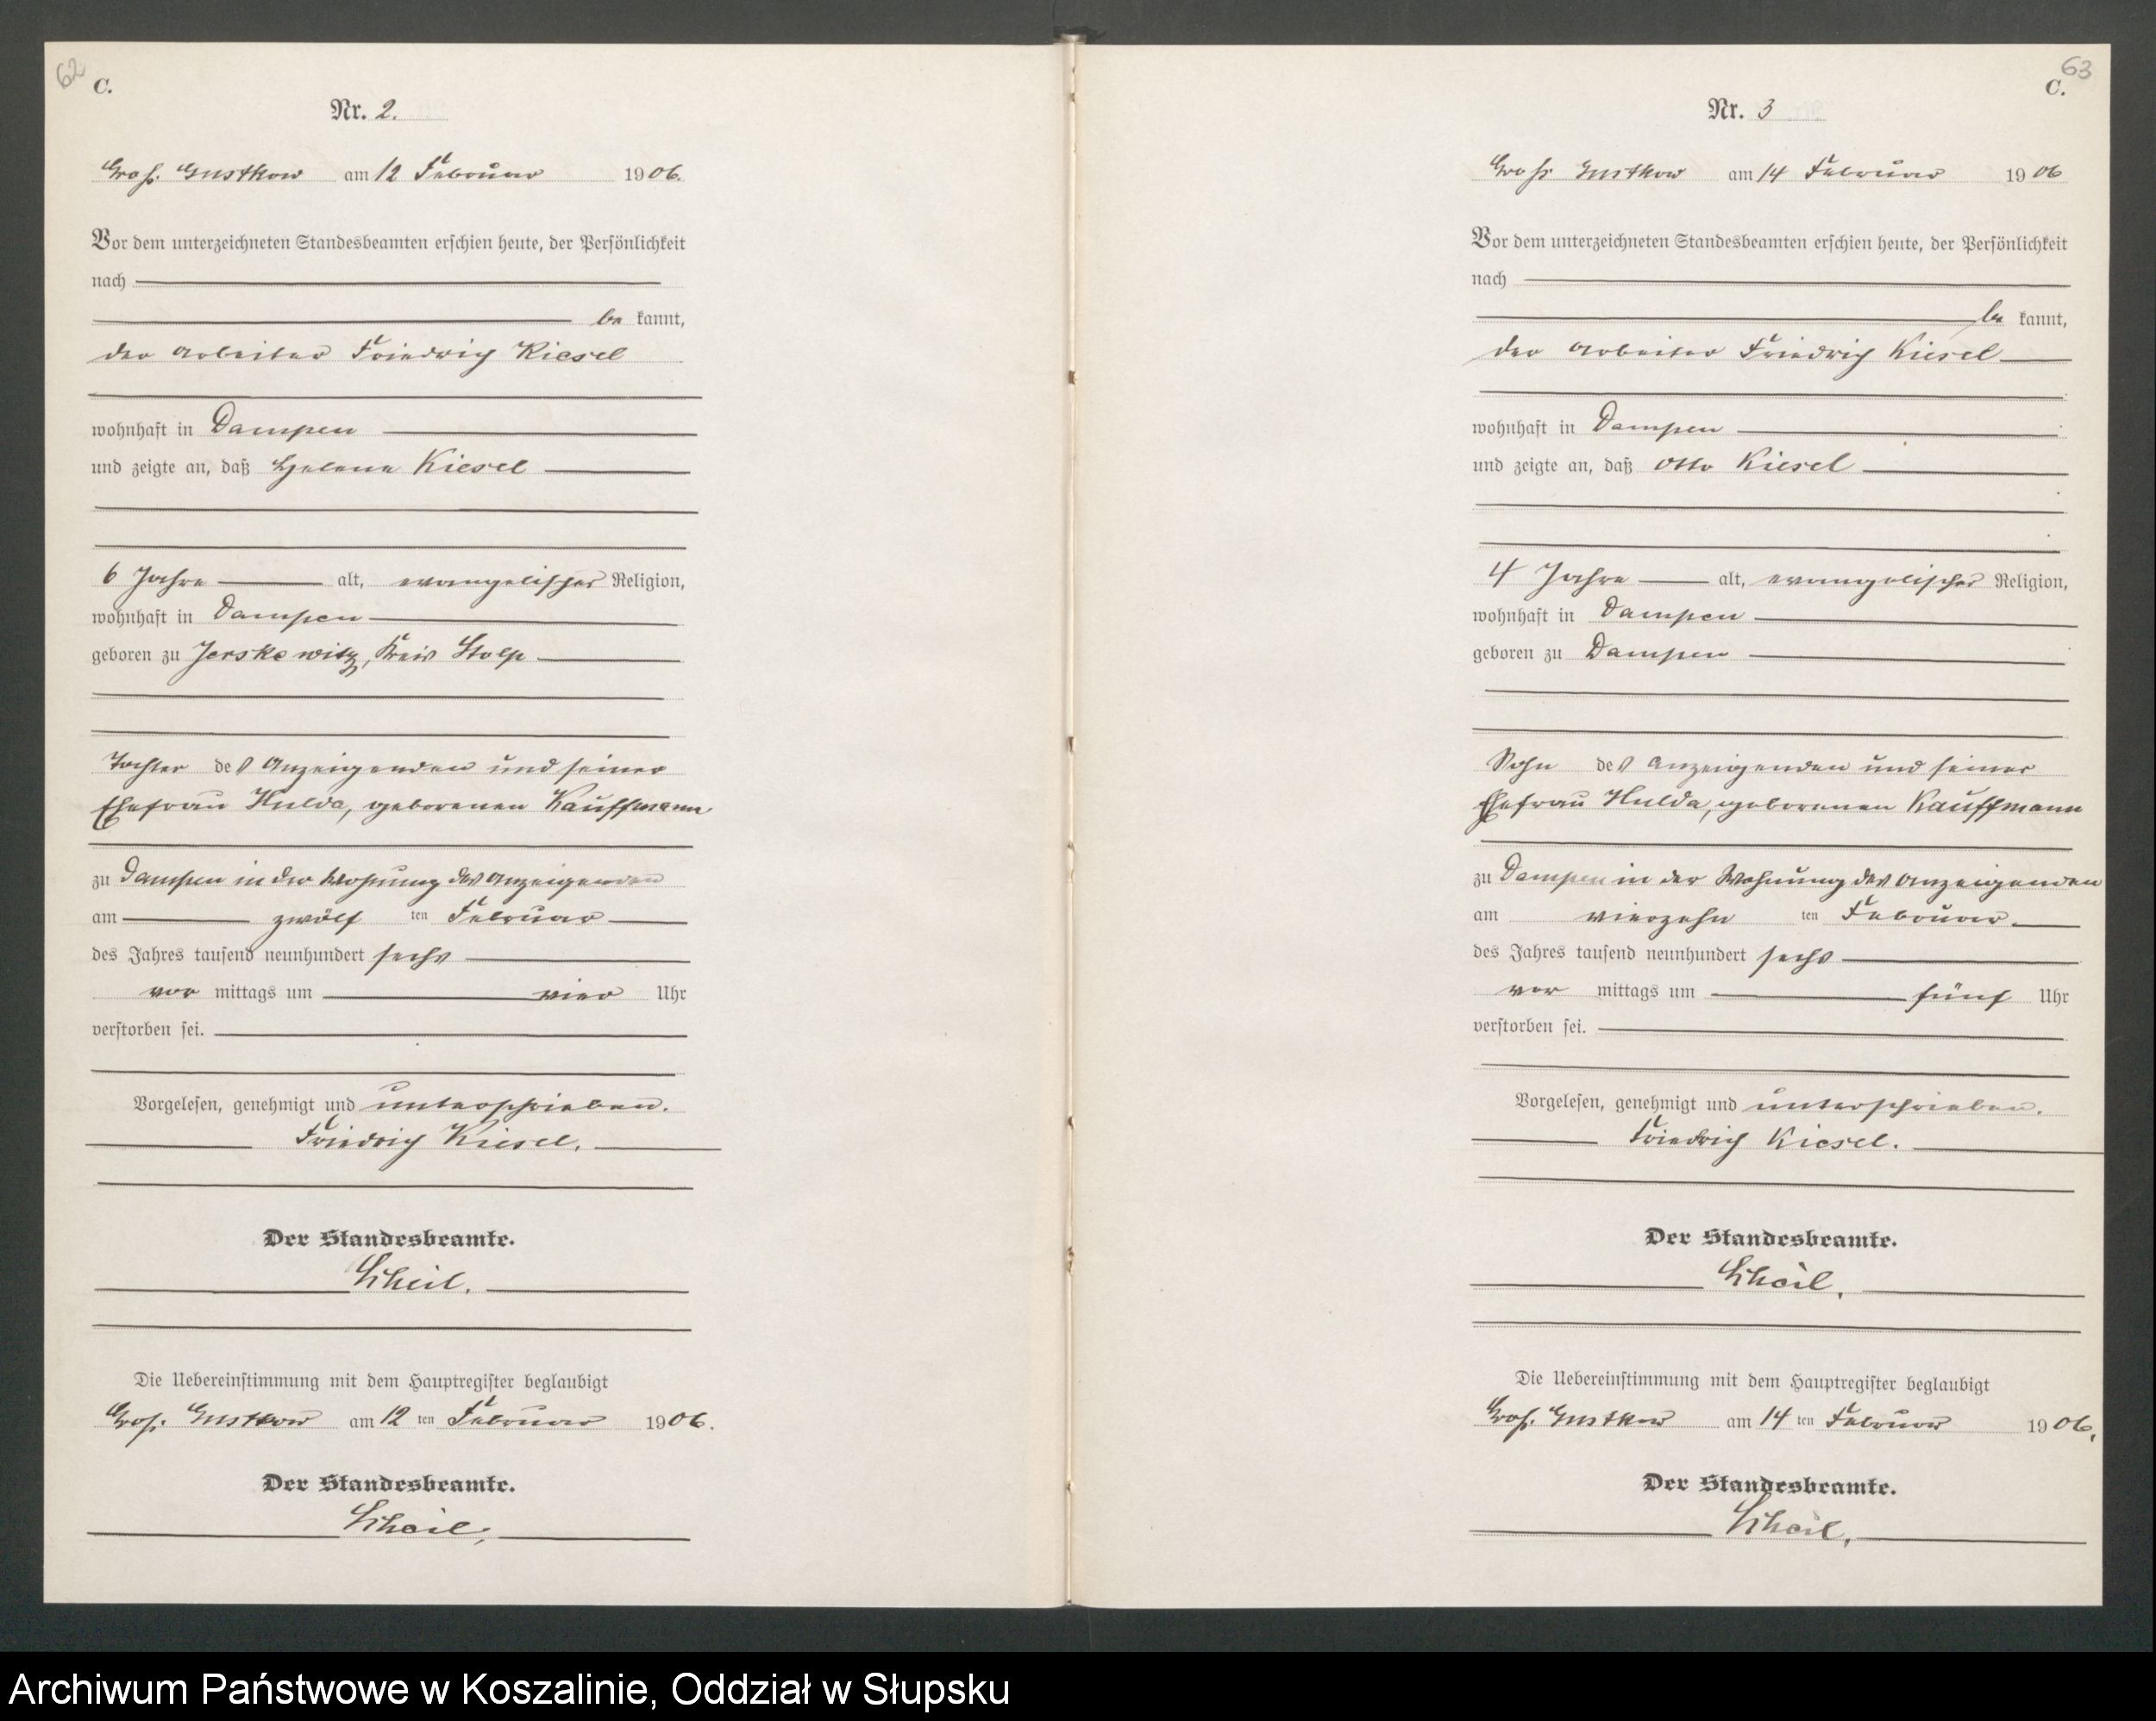 62
C.
Nr. 2.
Groß Gustkow am 12 Februar 1906.
Vor dem unterzeichneten Standesbeamten erschien heute, der Persönlichkeit
nach
be kannt,
der Arbeiter Friedrich Kiesel
wohnhaft in Dampen
und zeigte an, daß Helene Kiesel
6 Jahre alt, evangelischer Religion,
wohnhaft in Dampen
geboren zu Jerskewitz, Kreis Stolp
Tochter des Anzeigenden und seiner
Ehefrau Hulda, geborenen Kauffmann
zu Dampen in der Wohnung des Anzeigenden
am zwölf ten Februar
des Jahres tausend neunhundert sechs
vor mittags um vier Uhr
verstorben sei.
Vorgelesen, genehmigt und unterschrieben.
Friedrich Kiesel.
Der Standesbeamte.
Scheil.
Die Uebereinstimmung mit dem Hauptregister beglaubigt
Groß. Gustkow am 12 ten Februar 1906.
Der Standesbeamte.
Scheil.
63
C.
Nr. 3
Groß Gustkow am 14 Februar 1906
Vor dem unterzeichneten Standesbeamten erschien heute, der Persönlichkeit
nach
be kannt,
der Arbeiter Friedrich Kiesel
wohnhaft in Dampen
und zeigte an, daß Otto Kiesel
4 Jahre alt, evangelischer Religion,
wohnhaft in Dampen
geboren zu Dampen
Sohn des Anzeigenden und seiner
Ehefrau Hulda, geborenen Kauffmann
zu Dampen in der Wohnung des Anzeigenden
am vierzehn ten Februar.
des Jahres tausend neunhundert sechs
vor mittags um fünf Uhr
verstorben sei.
Vorgelesen, genehmigt und unterschrieben.
Friedrich Kiesel.
Der Standesbeamte.
Scheil.
Die Uebereinstimmung mit dem Hauptregister beglaubigt
Groß. Gustkow am 14 ten Februar 1906.
Der Standesbeamte.
Scheil.
Archiwum Państwowe w Koszalinie, Oddział w Słupsku